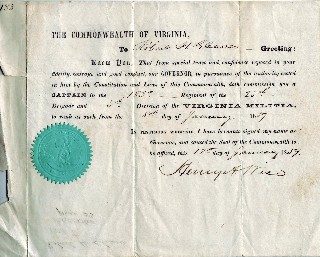 THE COMMONWEALTH OF VIRGINIA,
To Robert H. — Greeting:
KNOW YOU, That from special trust and confidence reposed in your
fidelity, courage, and good conduct, our GOVERNOR, in pursuance of the authority vested
in him by the Constitution and Laws of this Commonwealth, doth commission you a
CAPTAIN in the Regiment of the
Brigade and 5th Division of the VIRGINIA MILITIA,
to rank as such from the day of January
IN TESTIMONY WHEREOF, I have hereunto signed my name as
Governor, and caused the Seal of the Commonwealth to
be affixed, this day of January
Henry A Wise